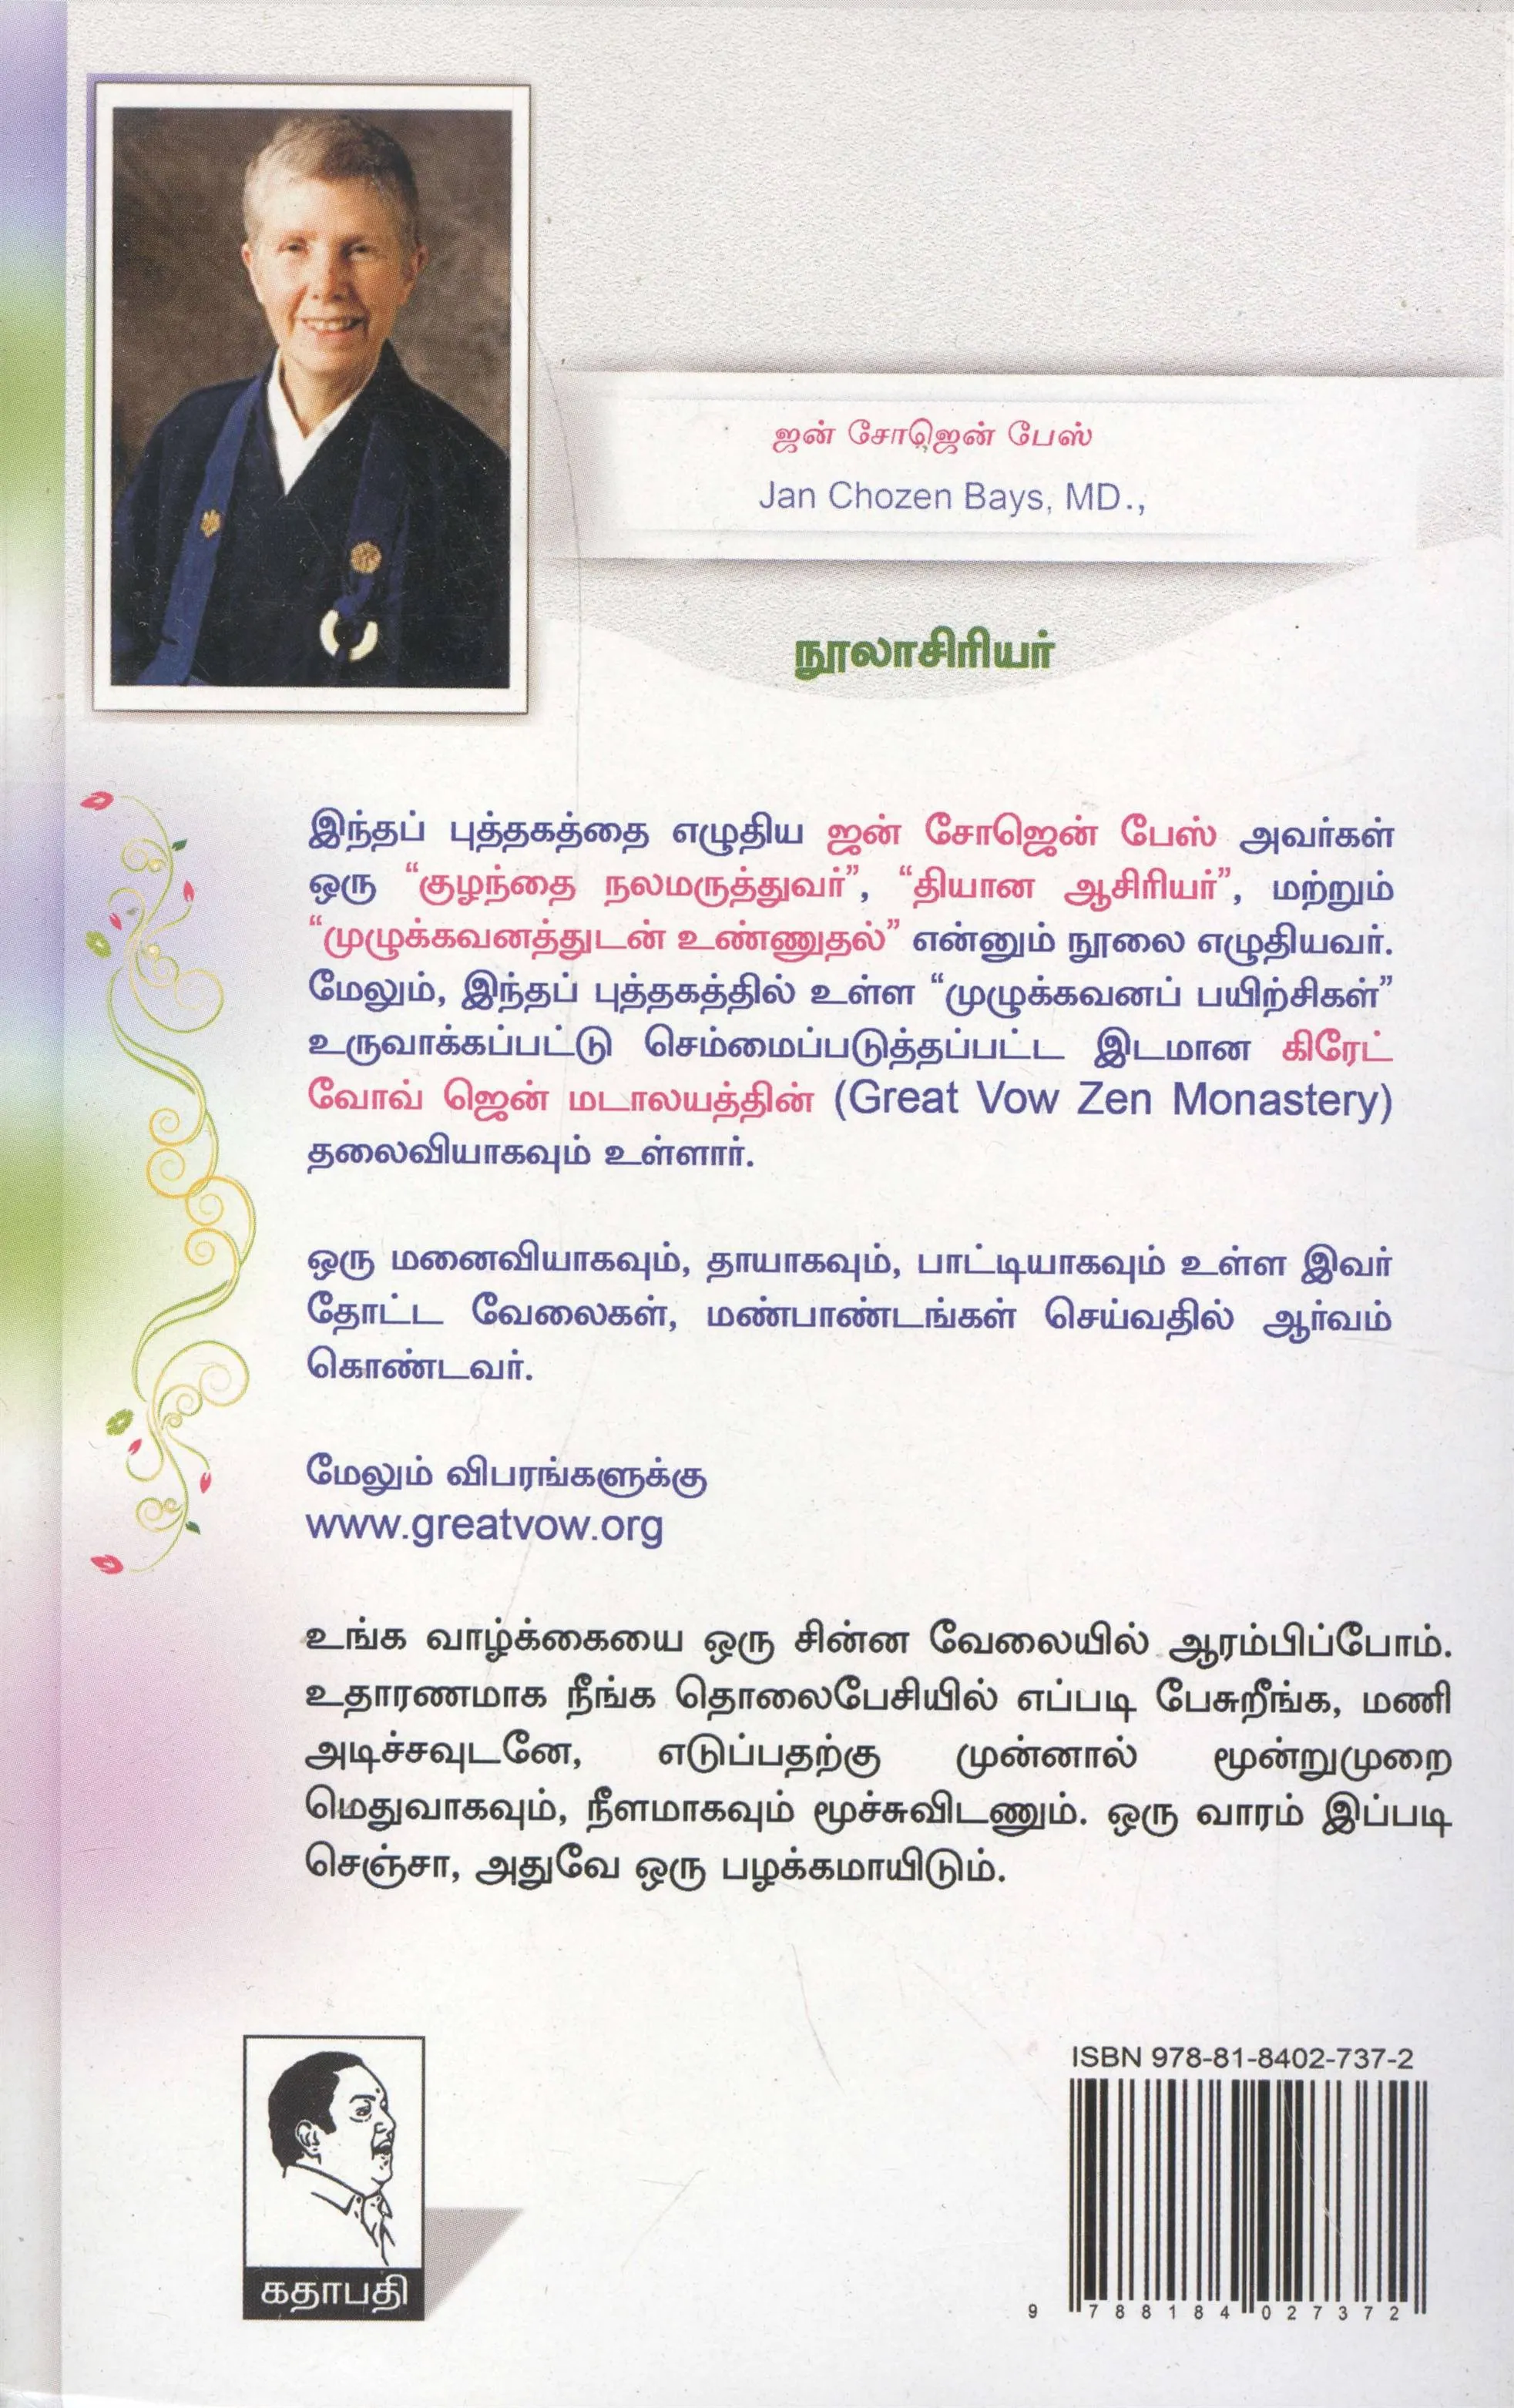 ஜன் சோஜென் பேஸ்
Jan Chozen Bays, MD.,
நூலாசிரியர்
இந்தப் புத்தகத்தை எழுதிய ஜன் சோஜென் பேஸ் அவர்கள்
ஒரு “குழந்தை நலமருத்துவர்”, “தியான ஆசிரியர்”, மற்றும்
“முழுக்கவனத்துடன் உண்ணுதல்” என்னும் நூலை எழுதியவர்.
மேலும், இந்தப் புத்தகத்தில் உள்ள “முழுக்கவனப் பயிற்சிகள்”
உருவாக்கப்பட்டு செம்மைப்படுத்தப்பட்ட இடமான கிரேட்
வோவ் ஜென் மடாலயத்தின் (Great Vow Zen Monastery)
தலைவியாகவும் உள்ளார்.
ஒரு மனைவியாகவும், தாயாகவும், பாட்டியாகவும் உள்ள இவர்
தோட்ட வேலைகள், மண்பாண்டங்கள் செய்வதில் ஆர்வம்
கொண்டவர்.
மேலும் விபரங்களுக்கு
www.greatvow.org
உங்க வாழ்க்கையை ஒரு சின்ன வேலையில் ஆரம்பிப்போம்.
உதாரணமாக நீங்க தொலைபேசியில் எப்படி பேசுறீங்க, மணி
அடிச்சவுடனே, எடுப்பதற்கு முன்னால் மூன்றுமுறை
மெதுவாகவும், நீளமாகவும் மூச்சுவிடணும். ஒரு வாரம் இப்படி
செஞ்சா, அதுவே ஒரு பழக்கமாயிடும்.
கதாபதி
ISBN 978-81-8402-737-2
9 788184 027372